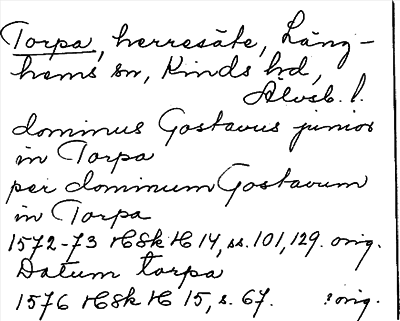 Torpa, herresäte, Läng-
hems sn, Kinds hd,
Älvsb. l.
dominus Gostavus junior
in Torpa
per dominum Gostavum
in Torpa
1572-73 HSk H 14, ss. 101, 129. orig.
Datum torpa
1576 HSk H 15, s. 67. orig.